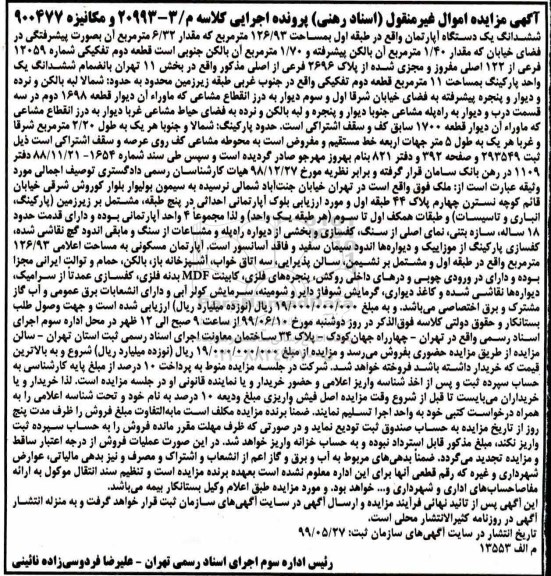 آگهی مزایده اموال غیرمنقول (اسناد رهنی) پرونده اجرایی کلاسه م/۳-۲۰۹۹۳ و مکانیزه ۹۰۰۴۷۷
ششدانگ یک دستگاه آپارتمان واقع در طبقه اول بمساحت ۱۲۶/۹۳ مترمربع که مقدار ۶/۳۲ مترمربع آن بصورت پیشرفتگی در
فضای خیابان که مقدار ۱/۴۰ مترمربع آن بالکن پیشرفته و ۱/۷۰ مترمربع آن بالکن جنوبی است قطعه دوم تفکیکی شماره ۱۲۰۵۹
فرعی از ۱۲۲ اصلی مفروز و مجزی شده از پلاک ۲۶۹۶ فرعی از اصلی مذکور واقع در بخش ۱۱ تهران بانضمام ششدانگ یک
واحد پارکینگ بمساحت ۱۱ مترمربع قطعه دوم تفکیکی واقع در جنوب غربی طبقه زیرزمین محدود به حدود: شمالا لبه بالکن و نرده
و دیوار و پنجره پیشرفته به فضای خیابان شرقا اول و سوم دیوار به درز انقطاع مشاعی که ماوراء آن دیوار قطعه ۱۶۹۸ دوم در سه
قسمت درب و دیوار به راه‌پله مشاعی جنوبا دیوار و پنجره و لبه بالکن و نرده به فضای حیاط مشاعی غربا دیوار به درز انقطاع مشاعی
که ماوراء آن دیوار قطعه ۱۷۰۰ سابق کف و سقف اشتراکی است. حدود پارکینگ: شمالا و جنوبا هر یک به طول ۲/۲۰ مترمربع شرقا
و غربا هر یک به طول ۵ متر جهات اربعه خط مستقیم و مفروض است به محوطه مشاعی کف روی عرصه و سقف اشتراکی است ذیل
ثبت ۲۹۳۵۴۹ و صفحه ۳۹۲ و دفتر ۸۲۱ بنام بهروز مهرجو صادر گردیده است و سپس طی سند شماره ۱۶۵۴-۸۸/۱۱/۲۱ دفتر
۱۱۰۹ در رهن بانک سامان قرار گرفته و برابر نظریه مورخ ۹۸/۱۲/۲۷ هیات کارشناسان رسمی دادگستری توصیف اجمالی مورد
وثیقه عبارت است از: ملک فوق واقع است در تهران خیابان جنت‌آباد شمالی نرسیده به سیمون بولیوار بلوار کوروش شرقی خیابان
قائم کوچه نسترن چهارم پلاک ۴۴ طبقه اول و مورد ارزیابی بلوک آپارتمانی احداثی در پنج طبقه، مشتمل بر زیرزمین (پارکینگ،
انباری و تاسیسات) و طبقات همکف اول تا سوم (هر طبقه یک واحد) و لذا مجموعا ۴ واحد آپارتمانی بوده و دارای قدمت حدود
۱۸ ساله، سازه بتنی، نمای اصلی از سنگ، کفسازی و بخشی از دیواره راه‌پله و مشاعات از سنگ و مابقی اندود گچ نقاشی شده،
کفسازی پارکینگ از موزاییک و دیواره‌ها اندود سیمان سفید و فاقد آسانسور است. آپارتمان مسکونی به مساحت اعلامی ۱۲۶/۹۳
مترمربع واقع در طبقه اول و مشتمل بر نشیمن، سالن پذیرایی، سه اتاق خواب، آشپزخانه باز، بالکن، حمام و توالت ایرانی مجزا
بوده و دارای در ورودی چوبی و درهای داخلی روکش، پنجره‌های فلزی، کابینت MDF بدنه فلزی، کفسازی عمدتا از سرامیک،
دیواره‌ها نقاشی شده و کاغذ دیواری، گرمایش شوفاژ دایر و شومینه، سرمایش کولر آبی و دارای انشعابات برق عمومی و آب گاز
مشترک و برق اختصاصی می‌باشد. و به مبلغ ۱۹/۰۰۰/۰۰۰/۰۰۰ ریال (نوزده میلیارد ریال) ارزیابی شده است و جهت وصول طلب
بستانکار و حقوق دولتی کلاسه فوق‌الذکر در روز دوشنبه مورخ ۹۹/۰۶/۱۰ از ساعت ۹ صبح الی ۱۲ ظهر در محل اداره سوم اجرای
اسناد رسمی واقع در تهران - چهارراه جهان‌کودک - پلاک ۳۴ ساختمان معاونت اجرای اسناد رسمی ثبت استان تهران - سالن
مزایده از طریق مزایده حضوری بفروش می‌رسد و مزایده از مبلغ ۱۹/۰۰۰/۰۰۰/۰۰۰ ریال (نوزده میلیارد ریال) شروع و به بالاترین
قیمت که خریدار داشته باشد فروخته خواهد شد. شرکت در جلسه مزایده منوط به پرداخت ۱۰ درصد از مبلغ پایه کارشناسی به
حساب سپرده ثبت و پس از اخذ شناسه واریز اعلامی و حضور خریدار و یا نماینده قانونی او در جلسه مزایده است. لذا خریدار و یا
خریداران می‌بایست تا قبل از شروع وقت مزایده اصل فیش واریزی مبلغ ودیعه ۱۰ درصد به نام خود و تحت شناسه اعلامی را به
همراه درخواست کتبی خود به واحد اجرا تسلیم نمایند. ضمنا برنده مزایده مکلف است مابه‌التفاوت مبلغ فروش را ظرف مدت پنج
روز از تاریخ مزایده به حساب صندوق ثبت تودیع نماید و در صورتی که ظرف مهلت مقرر مانده فروش را به حساب سپرده ثبت
واریز نکند، مبلغ مذکور قابل استرداد نبوده و به حساب خزانه واریز خواهد شد. در این صورت عملیات فروش از درجه اعتبار ساقط
و مزایده تجدید می‌گردد. ضمنا بدهی‌های مربوط به آب و برق و گاز اعم از انشعاب و اشتراک و مصرف و نیز بدهی مالیاتی، عوارض
شهرداری و غیره که رقم قطعی آنها برای این اداره معلوم نشده است بعهده برنده مزایده است و تنظیم سند انتقال موکول به ارائه
مفاصاحساب‌های اداری و شهرداری و... خواهد بود. و مورد مزایده طبق اعلام وکیل بستانکار بیمه می‌باشد.
این آگهی پس از تائید نهائی فرآیند مزایده و ارسال آگهی در سایت آگهی‌های سازمان ثبت قرار خواهد گرفت و به منزله انتشار
آگهی در روزنامه کثیرالانتشار محلی است.
تاریخ انتشار در سایت آگهی‌های سازمان ثبت: ۹۹/۰۵/۲۷
م الف ۱۳۵۵۳
رئیس اداره سوم اجرای اسناد رسمی تهران - علیرضا فردوسی‌زاده نائینی